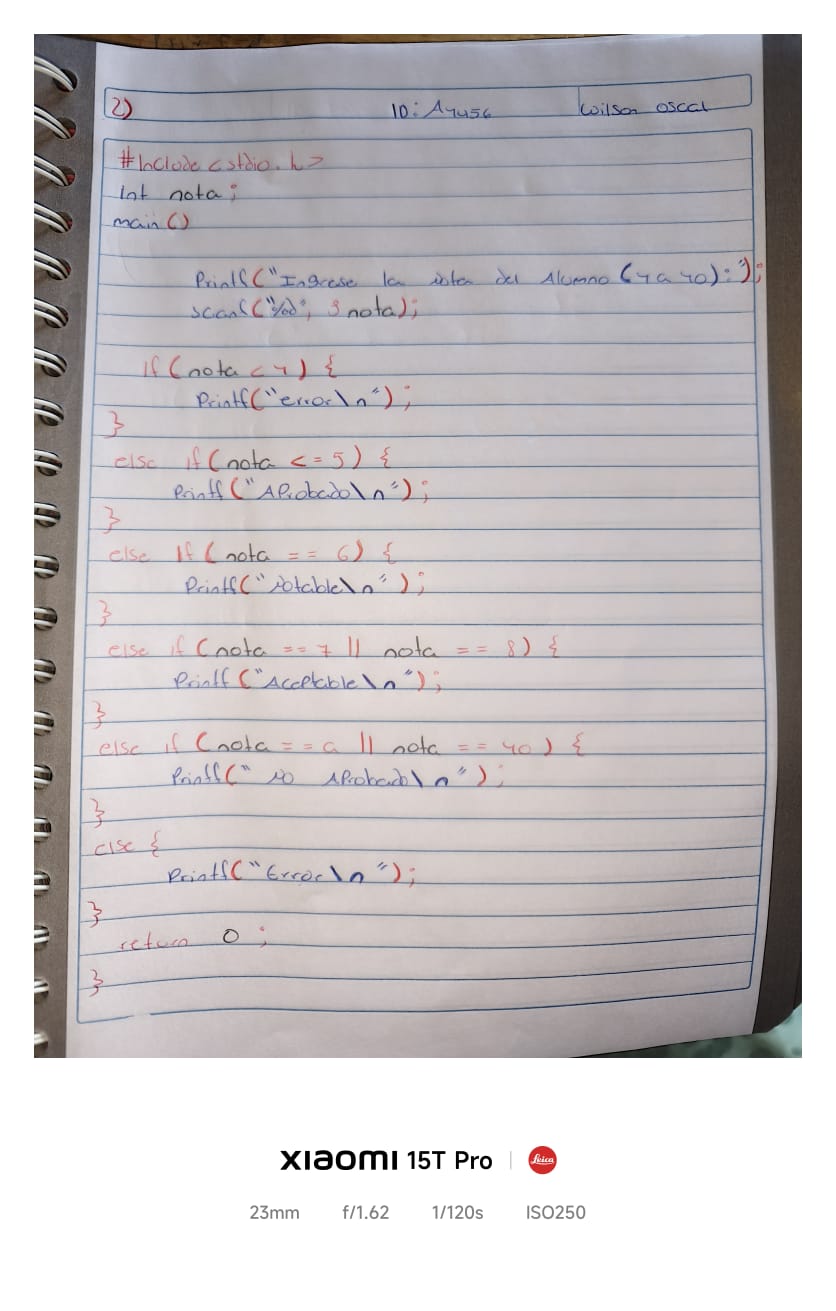 2) ID: A7456 Wilson oscal
#Include <stdio.h>
Int nota;
main()
Printf("Ingrese la nota del Alumno (1 a 10): ");
scanf("%d", &nota);
if (nota < 1) {
Printf("error\n");
}
else if (nota <= 5) {
Printf("AProbado\n");
}
else If (nota == 6) {
Printf("Notable\n");
}
else if (nota == 7 || nota == 8) {
Printf("Acceptable\n");
}
else if (nota == 9 || nota == 10) {
Printf("No AProbado\n");
}
else {
Printf("Error\n");
}
return 0;
}
XIAOMI 15T Pro | Leica
23mm f/1.62 1/120s ISO250